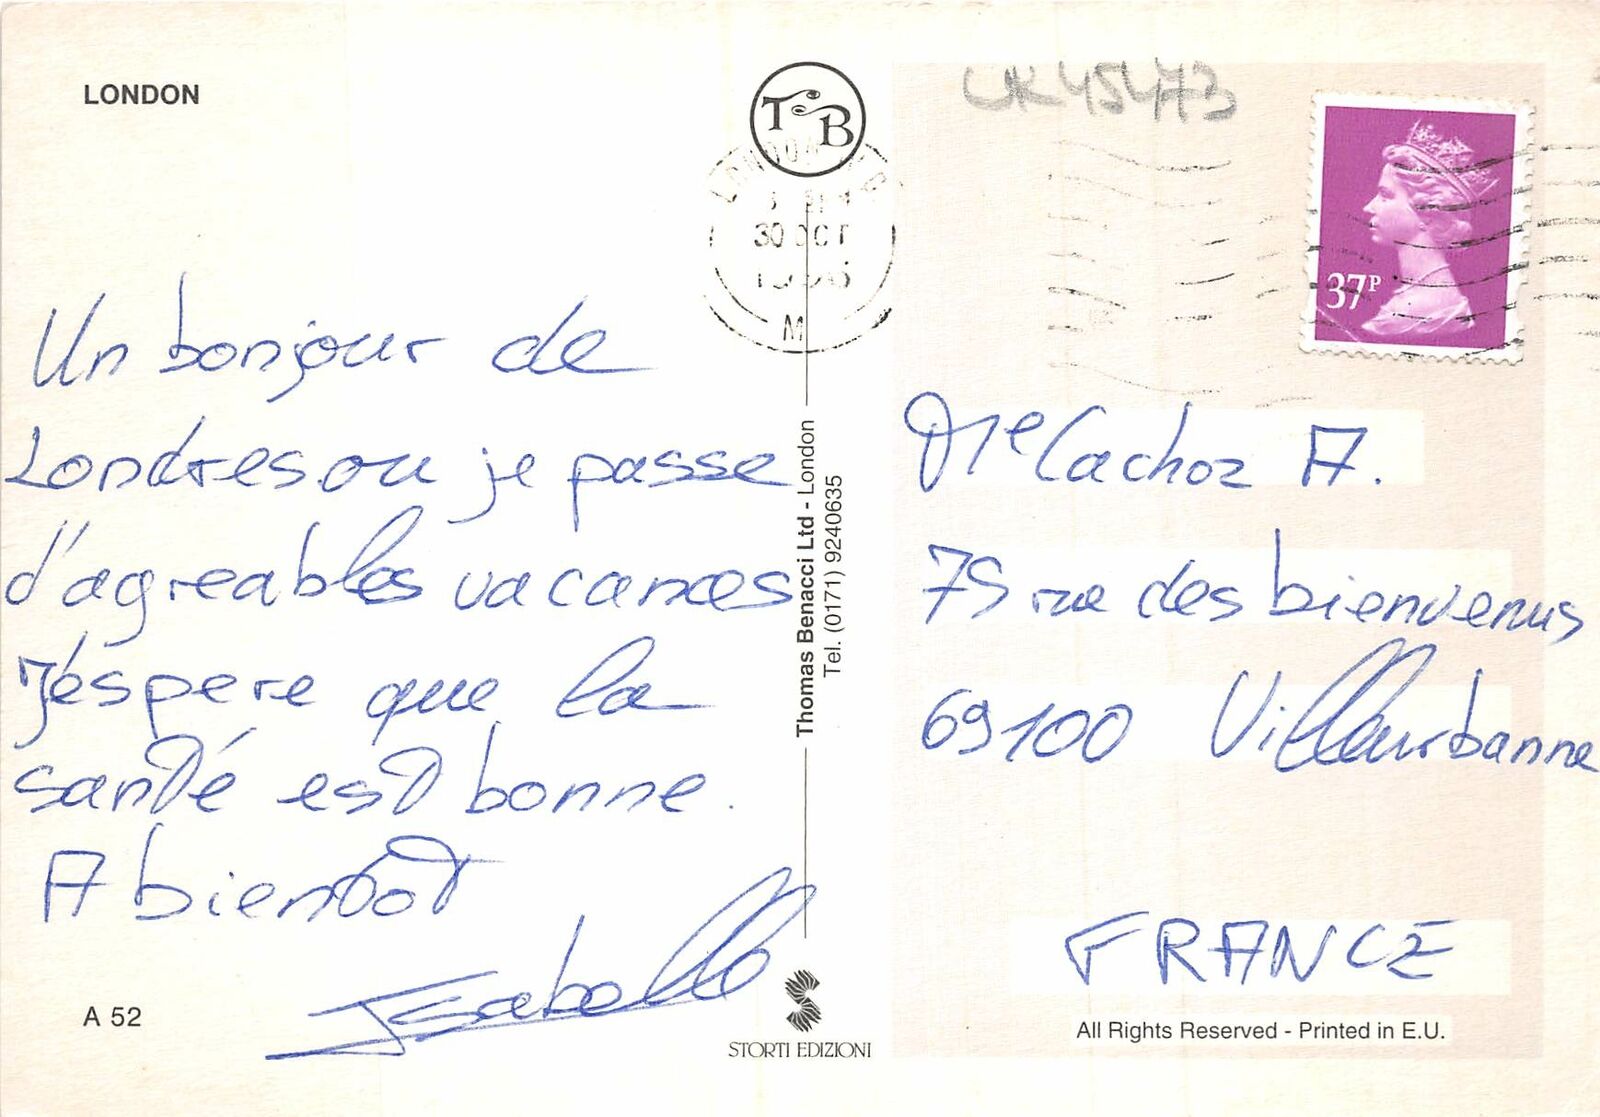 LONDON
T B
UK45473
30 OCT
M
37P
Un bonjour de
Londres ou je passe
d'agreables vacances
J'éspere que la
santé est bonne.
A bientot
Isabelle
A 52
Thomas Benacci Ltd - London
Tel. (0171) 9240635
STORTI EDIZIONI
Me Cachoz A.
75 rue des bienvenus
69100 Villeurbanne
FRANCE
All Rights Reserved - Printed in E.U.